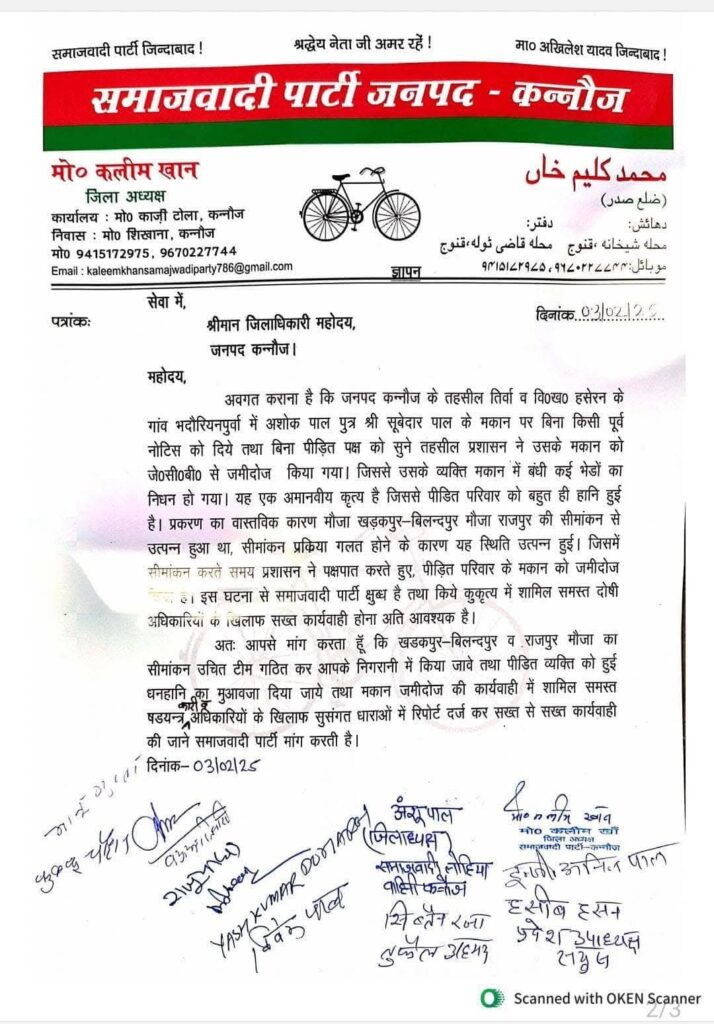 समाजवादी पार्टी जिन्दाबाद !
श्रद्धेय नेता जी अमर रहें !
मा० अखिलेश यादव जिन्दाबाद !
समाजवादी पार्टी जनपद - कन्नौज
मो० कलीम खान
जिला अध्यक्ष
कार्यालय : मो० काज़ी टोला, कन्नौज
निवास : मो० शिखाना, कन्नौज
मो० 9415172975, 9670227744
Email : kaleemkhansamajwadiparty786@gmail.com
محمد کلیم خاں
(ضلع صدر)
دھائش: دفتر:
محلہ شیخانہ ،قنوج محلہ قاضی ٹولہ،قنوج
موبائل:۹۴۱۵۱۷۲۹۷۵، ۹۶۷۰۲۲۷۷۴۴
ज्ञापन
सेवा में,
पत्रांकः
दिनांक 03/02/25
श्रीमान जिलाधिकारी महोदय,
जनपद कन्नौज।
महोदय,
अवगत कराना है कि जनपद कन्नौज के तहसील तिर्वा व वि०ख० हसेरन के
गांव भदौरियनपुर्वा में अशोक पाल पुत्र श्री सूबेदार पाल के मकान पर बिना किसी पूर्व
नोटिस को दिये तथा बिना पीड़ित पक्ष को सुने तहसील प्रशासन ने उसके मकान को
जे०सी०बी० से जमीदोज किया गया। जिससे उसके व्यक्ति मकान में बंधी कई भेडों का
निधन हो गया। यह एक अमानवीय कृत्य है जिससे पीडित परिवार को बहुत ही हानि हुई
है। प्रकरण का वास्तविक कारण मौजा खड़कपुर–बिलन्दपुर मौजा राजपुर की सीमांकन से
उत्पन्न हुआ था, सीमांकन प्रक्रिया गलत होने के कारण यह स्थिति उत्पन्न हुई। जिसमें
सीमांकन करते समय प्रशासन ने पक्षपात करते हुए, पीड़ित परिवार के मकान को जमीदोज
है। इस घटना से समाजवादी पार्टी क्षुब्ध है तथा किये कुकृत्य में शामिल समस्त दोषी
अधिकारियों के खिलाफ सख्त कार्यवाही होना अति आवश्यक है।
अतः आपसे मांग करता हूँ कि खडकपुर–बिलन्दपुर व राजपुर मौजा का
सीमांकन उचित टीम गठित कर आपके निगरानी में किया जावे तथा पीडित व्यक्ति को हुई
धनहानि का मुआवजा दिया जाये तथा मकान जमीदोज की कार्यवाही में शामिल समस्त
षडयन्त्र कारी अधिकारियों के खिलाफ सुसंगत धाराओं में रिपोर्ट दर्ज कर सख्त से सख्त कार्यवाही
की जाने समाजवादी पार्टी मांग करती है।
दिनांक– 03/02/25
YASH KUMAR
पाल
अंशू पाल
(जिलाध्यक्ष)
समाजवादी लोहिया
वाहिनी कन्नौज
सिब्तैन रजा
तुफैल अहमद
मो० कलीम खाँ
जिला अध्यक्ष
समाजवादी पार्टी-कन्नौज
अनिल पाल
हसीब हसन
प्रदेश उपाध्यक्ष
Scanned with OKEN Scanner
2/3